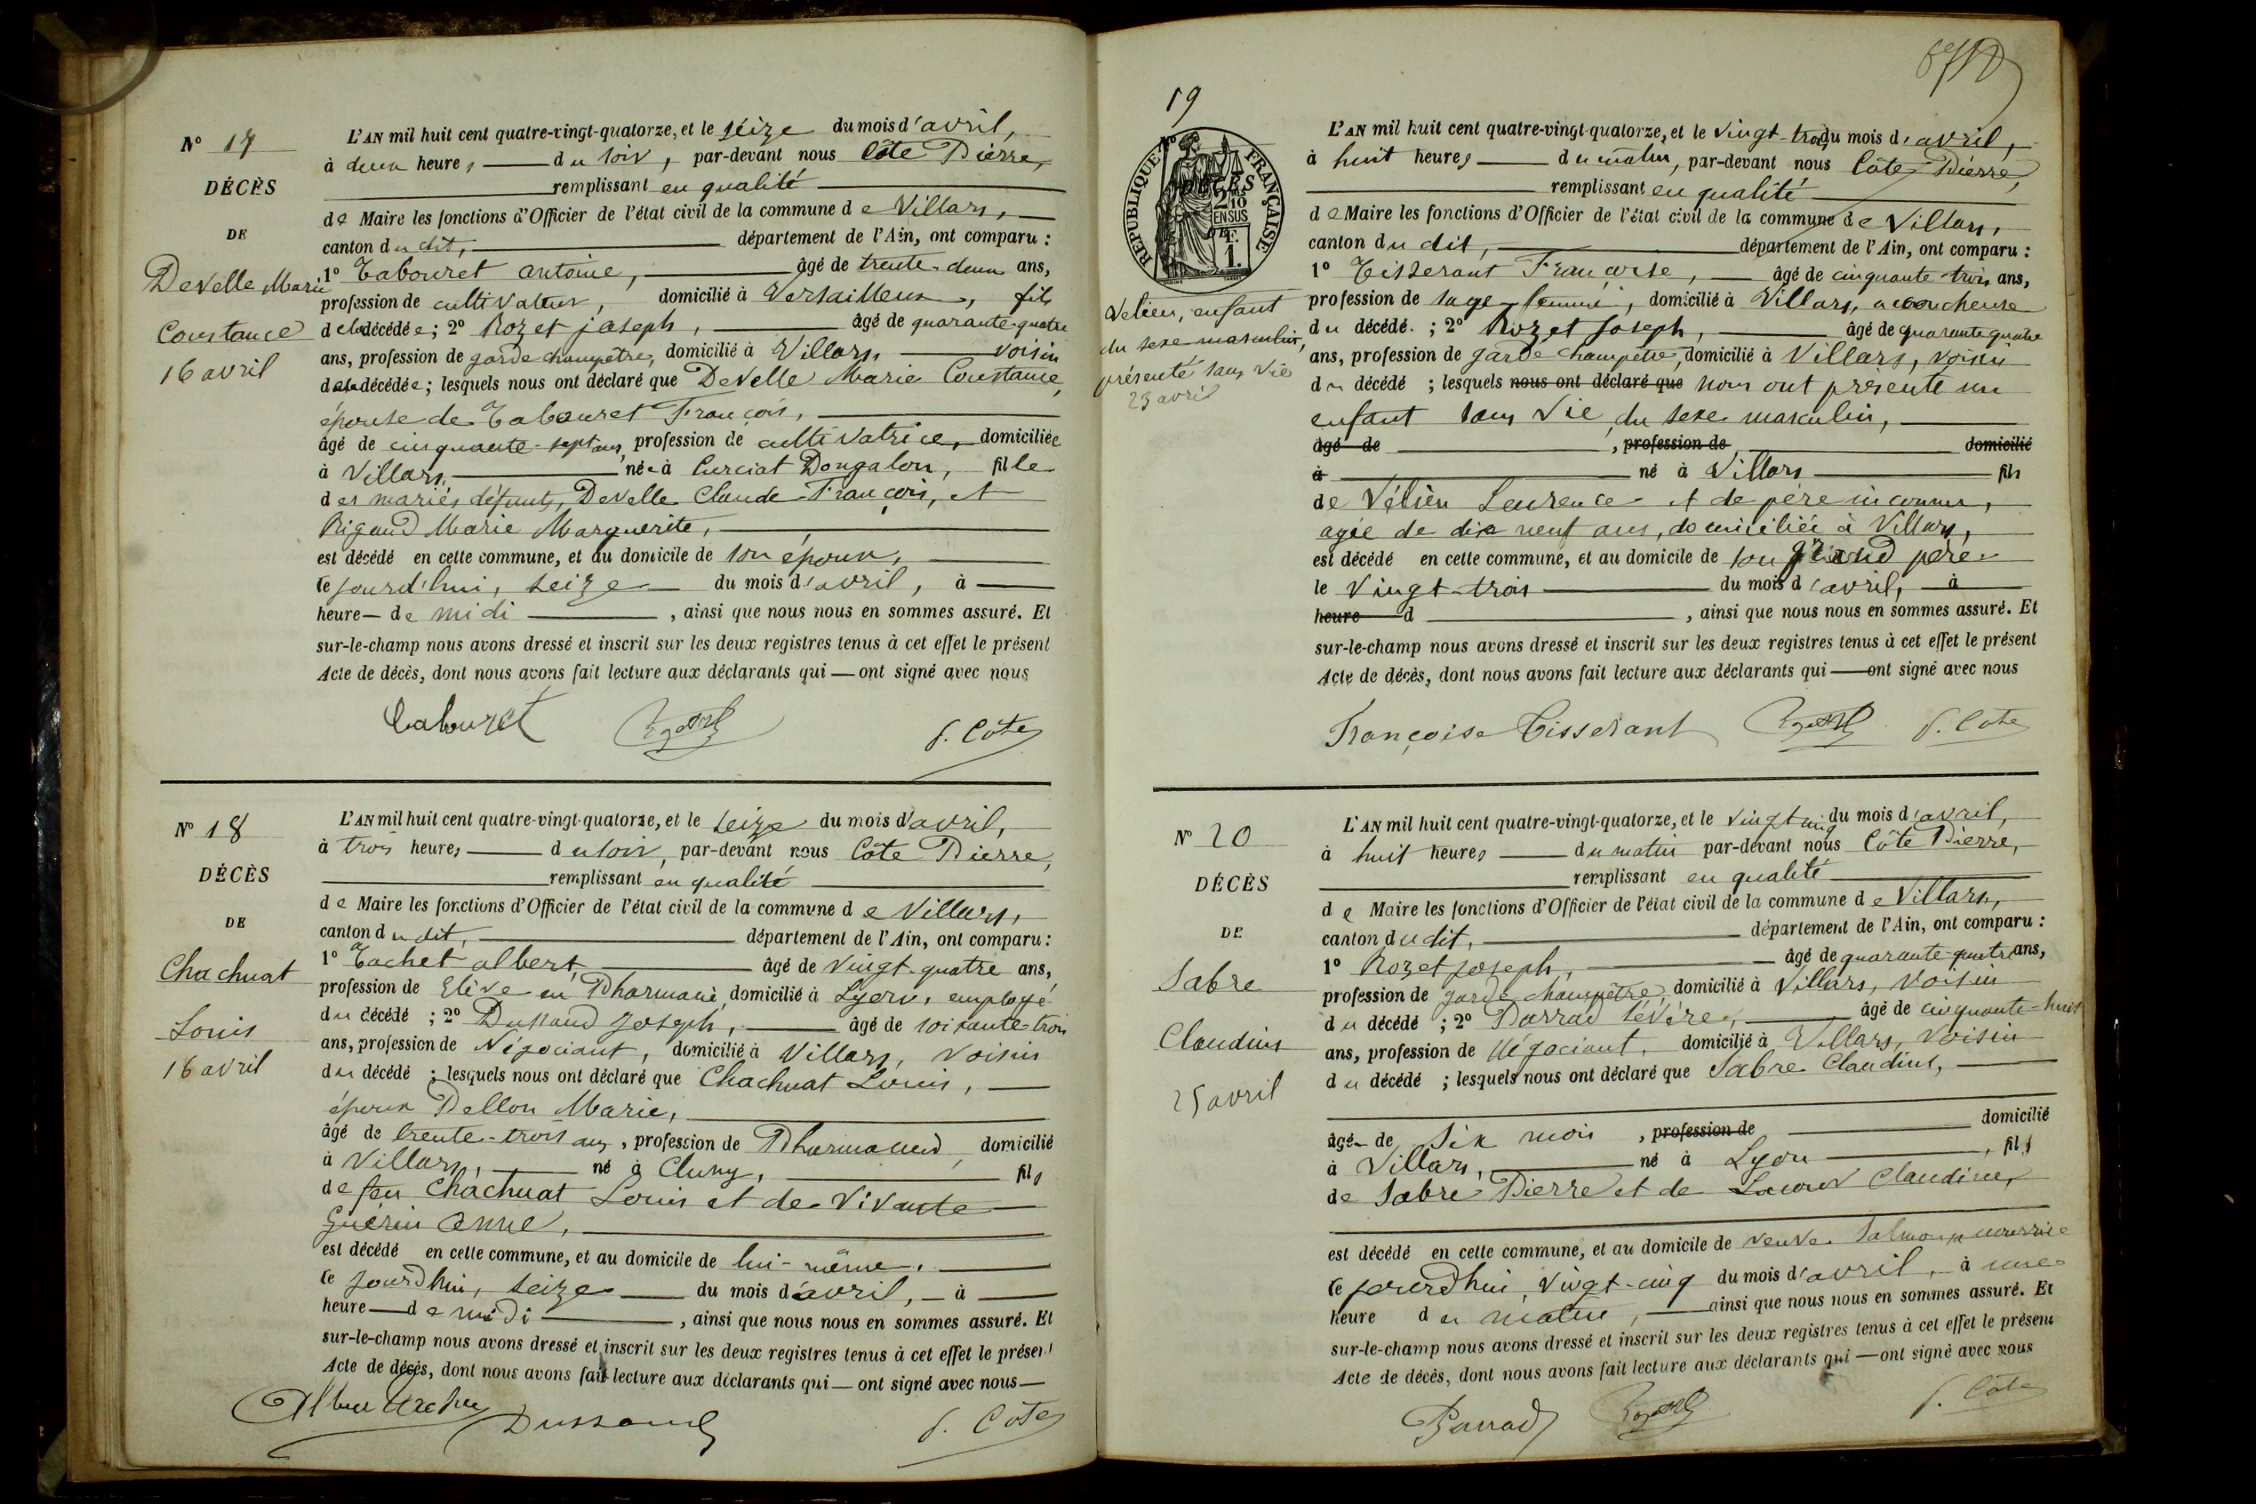 Nº 17
DÉCÈS
DE
Develle Marie
Constance
16 avril
L'AN mil huit cent quatre-vingt-quatorze, et le seize du mois d'avril,
à deux heures du soir, par-devant nous Côte Pierre,
remplissant en qualité
de Maire les fonctions d'Officier de l'état civil de la commune de Villars,
canton du dit, département de l'Ain, ont comparu :
1º Tabouret antoine, âgé de trente-deux ans,
profession de cultivateur, domicilié à Versailleux, fils
de la décédée ; 2º Rozet joseph, âgé de quarante-quatre
ans, profession de garde champêtre, domicilié à Villars, voisin
de la décédée ; lesquels nous ont déclaré que Develle Marie Constance,
épouse de Tabouret François,
âgé de cinquante-sept ans, profession de cultivatrice, domiciliée
à Villars, née à Curciat Dongalon, fille
des mariés défunts, Develle Claude François, et
Rigaud Marie Marguerite,
est décédé en cette commune, et au domicile de son époux,
ce jourd'hui, seize du mois d'avril, à
heure de midi, ainsi que nous nous en sommes assuré. Et
sur-le-champ nous avons dressé et inscrit sur les deux registres tenus à cet effet le présent
Acte de décès, dont nous avons fait lecture aux déclarants qui ont signé avec nous
Tabouret Rozet P. Côte
Nº 18
DÉCÈS
DE
Chachuat
Louis
16 avril
L'AN mil huit cent quatre-vingt-quatorze, et le seize du mois d'avril,
à trois heures du soir, par-devant nous Côte Pierre,
remplissant en qualité
de Maire les fonctions d'Officier de l'état civil de la commune de Villars,
canton du dit, département de l'Ain, ont comparu :
1º Tachet albert, âgé de vingt-quatre ans,
profession de Elève en Pharmacie, domicilié à Lyon, employé
du décédé ; 2º Dussaud Joseph, âgé de soixante-trois
ans, profession de Négociant, domicilié à Villars, voisin
du décédé ; lesquels nous ont déclaré que Chachuat Louis,
époux Dellon Marie,
âgé de trente-trois ans, profession de Pharmacien, domicilié
à Villars, né à Cluny, fils
de feu Chachuat Louis et de Vivante
Guérin Anne,
est décédé en cette commune, et au domicile de lui-même,
ce jourd'hui, seize du mois d'avril, à
heure de midi, ainsi que nous nous en sommes assuré. Et
sur-le-champ nous avons dressé et inscrit sur les deux registres tenus à cet effet le présent
Acte de décès, dont nous avons fait lecture aux déclarants qui ont signé avec nous
Albert Tachet Dussaud P. Côte
19
RÉPUBLIQUE FRANÇAISE
2/10
EN SUS
F.
1.
Velien, enfant
du sexe masculin,
présenté sans vie
23 avril
L'AN mil huit cent quatre-vingt-quatorze, et le vingt-trois du mois d'avril,
à huit heures du matin, par-devant nous Côte Pierre,
remplissant en qualité
de Maire les fonctions d'Officier de l'état civil de la commune de Villars,
canton du dit, département de l'Ain, ont comparu :
1º Tisserant Françoise, âgé de cinquante-trois ans,
profession de sage-femme, domicilié à Villars, accoucheuse
du décédé ; 2º Rozet Joseph, âgé de quarante quatre
ans, profession de garde champêtre, domicilié à Villars, voisin
du décédé ; lesquels nous ont déclaré que nous ont présenté un
enfant sans vie du sexe masculin,
âgé de , profession de domicilié
à né à Villars fils
de Vélien Laurence et de père inconnu,
agée de dix neuf ans, domiciliée à Villars,
est décédé en cette commune, et au domicile de son grand père
le vingt-trois du mois d'avril, à
heure d , ainsi que nous nous en sommes assuré. Et
sur-le-champ nous avons dressé et inscrit sur les deux registres tenus à cet effet le présent
Acte de décès, dont nous avons fait lecture aux déclarants qui ont signé avec nous
Françoise Tisserant Rozet P. Côte
Nº 20
DÉCÈS
DE
Sabre
Claudius
25 avril
L'AN mil huit cent quatre-vingt-quatorze, et le vingt cinq du mois d'avril,
à huit heures du matin par-devant nous Côte Pierre,
remplissant en qualité
de Maire les fonctions d'Officier de l'état civil de la commune de Villars,
canton du dit, département de l'Ain, ont comparu :
1º Rozet joseph, âgé de quarante-quatre ans,
profession de garde champêtre, domicilié à Villars, voisin
du décédé ; 2º Parrad âgé de cinquante-huit
ans, profession de Négociant, domicilié à Villars, voisin
du décédé ; lesquels nous ont déclaré que Sabre Claudius,
âgé de six mois, profession de domicilié
à Villars, né à Lyon, fils
de Sabre Pierre et de Claudine,
est décédé en cette commune, et au domicile de veuve Salmon, nourrice
ce jourd'hui, vingt-cinq du mois d'avril, à une
heure du matin, ainsi que nous nous en sommes assuré. Et
sur-le-champ nous avons dressé et inscrit sur les deux registres tenus à cet effet le présent
Acte de décès, dont nous avons fait lecture aux déclarants qui ont signé avec nous
Parrad Rozet P. Côte